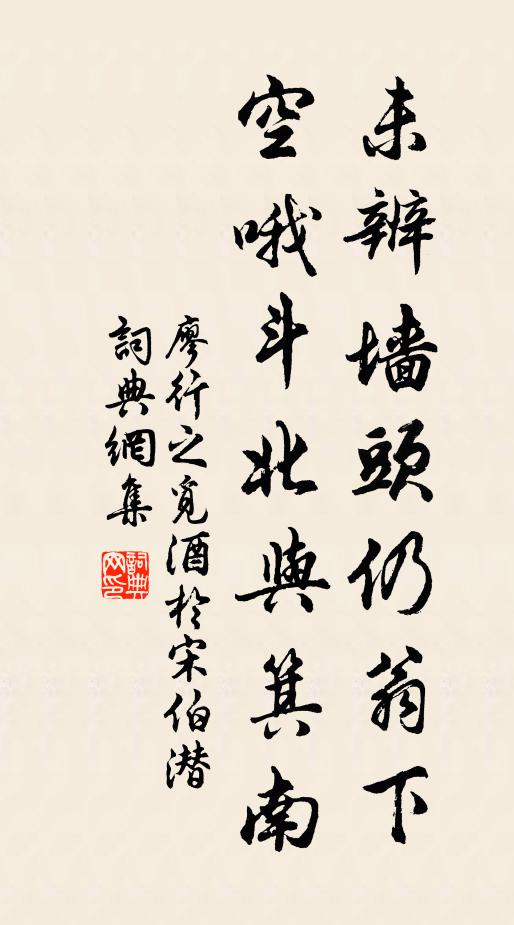 未辦墻頭仍翁下
空哦斗北與箕南
廖行之覓酒於宋伯潜
詞典網集
詞典
网印